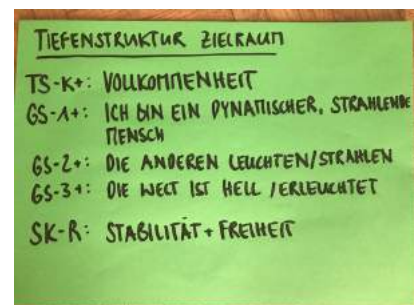 TIEFENSTRUKTUR ZIELRAUM
TS-K+: VOLLKOMMENHEIT
GS-1+: ICH BIN EIN DYNAMISCHER, STRAHLENDE
MENSCH
GS-2+: DIE ANDEREN LEUCHTEN/STRAHLEN
GS-3+: DIE WELT IST HELL /ERLEUCHTET
SK-R: STABILITÄT + FREIHEIT